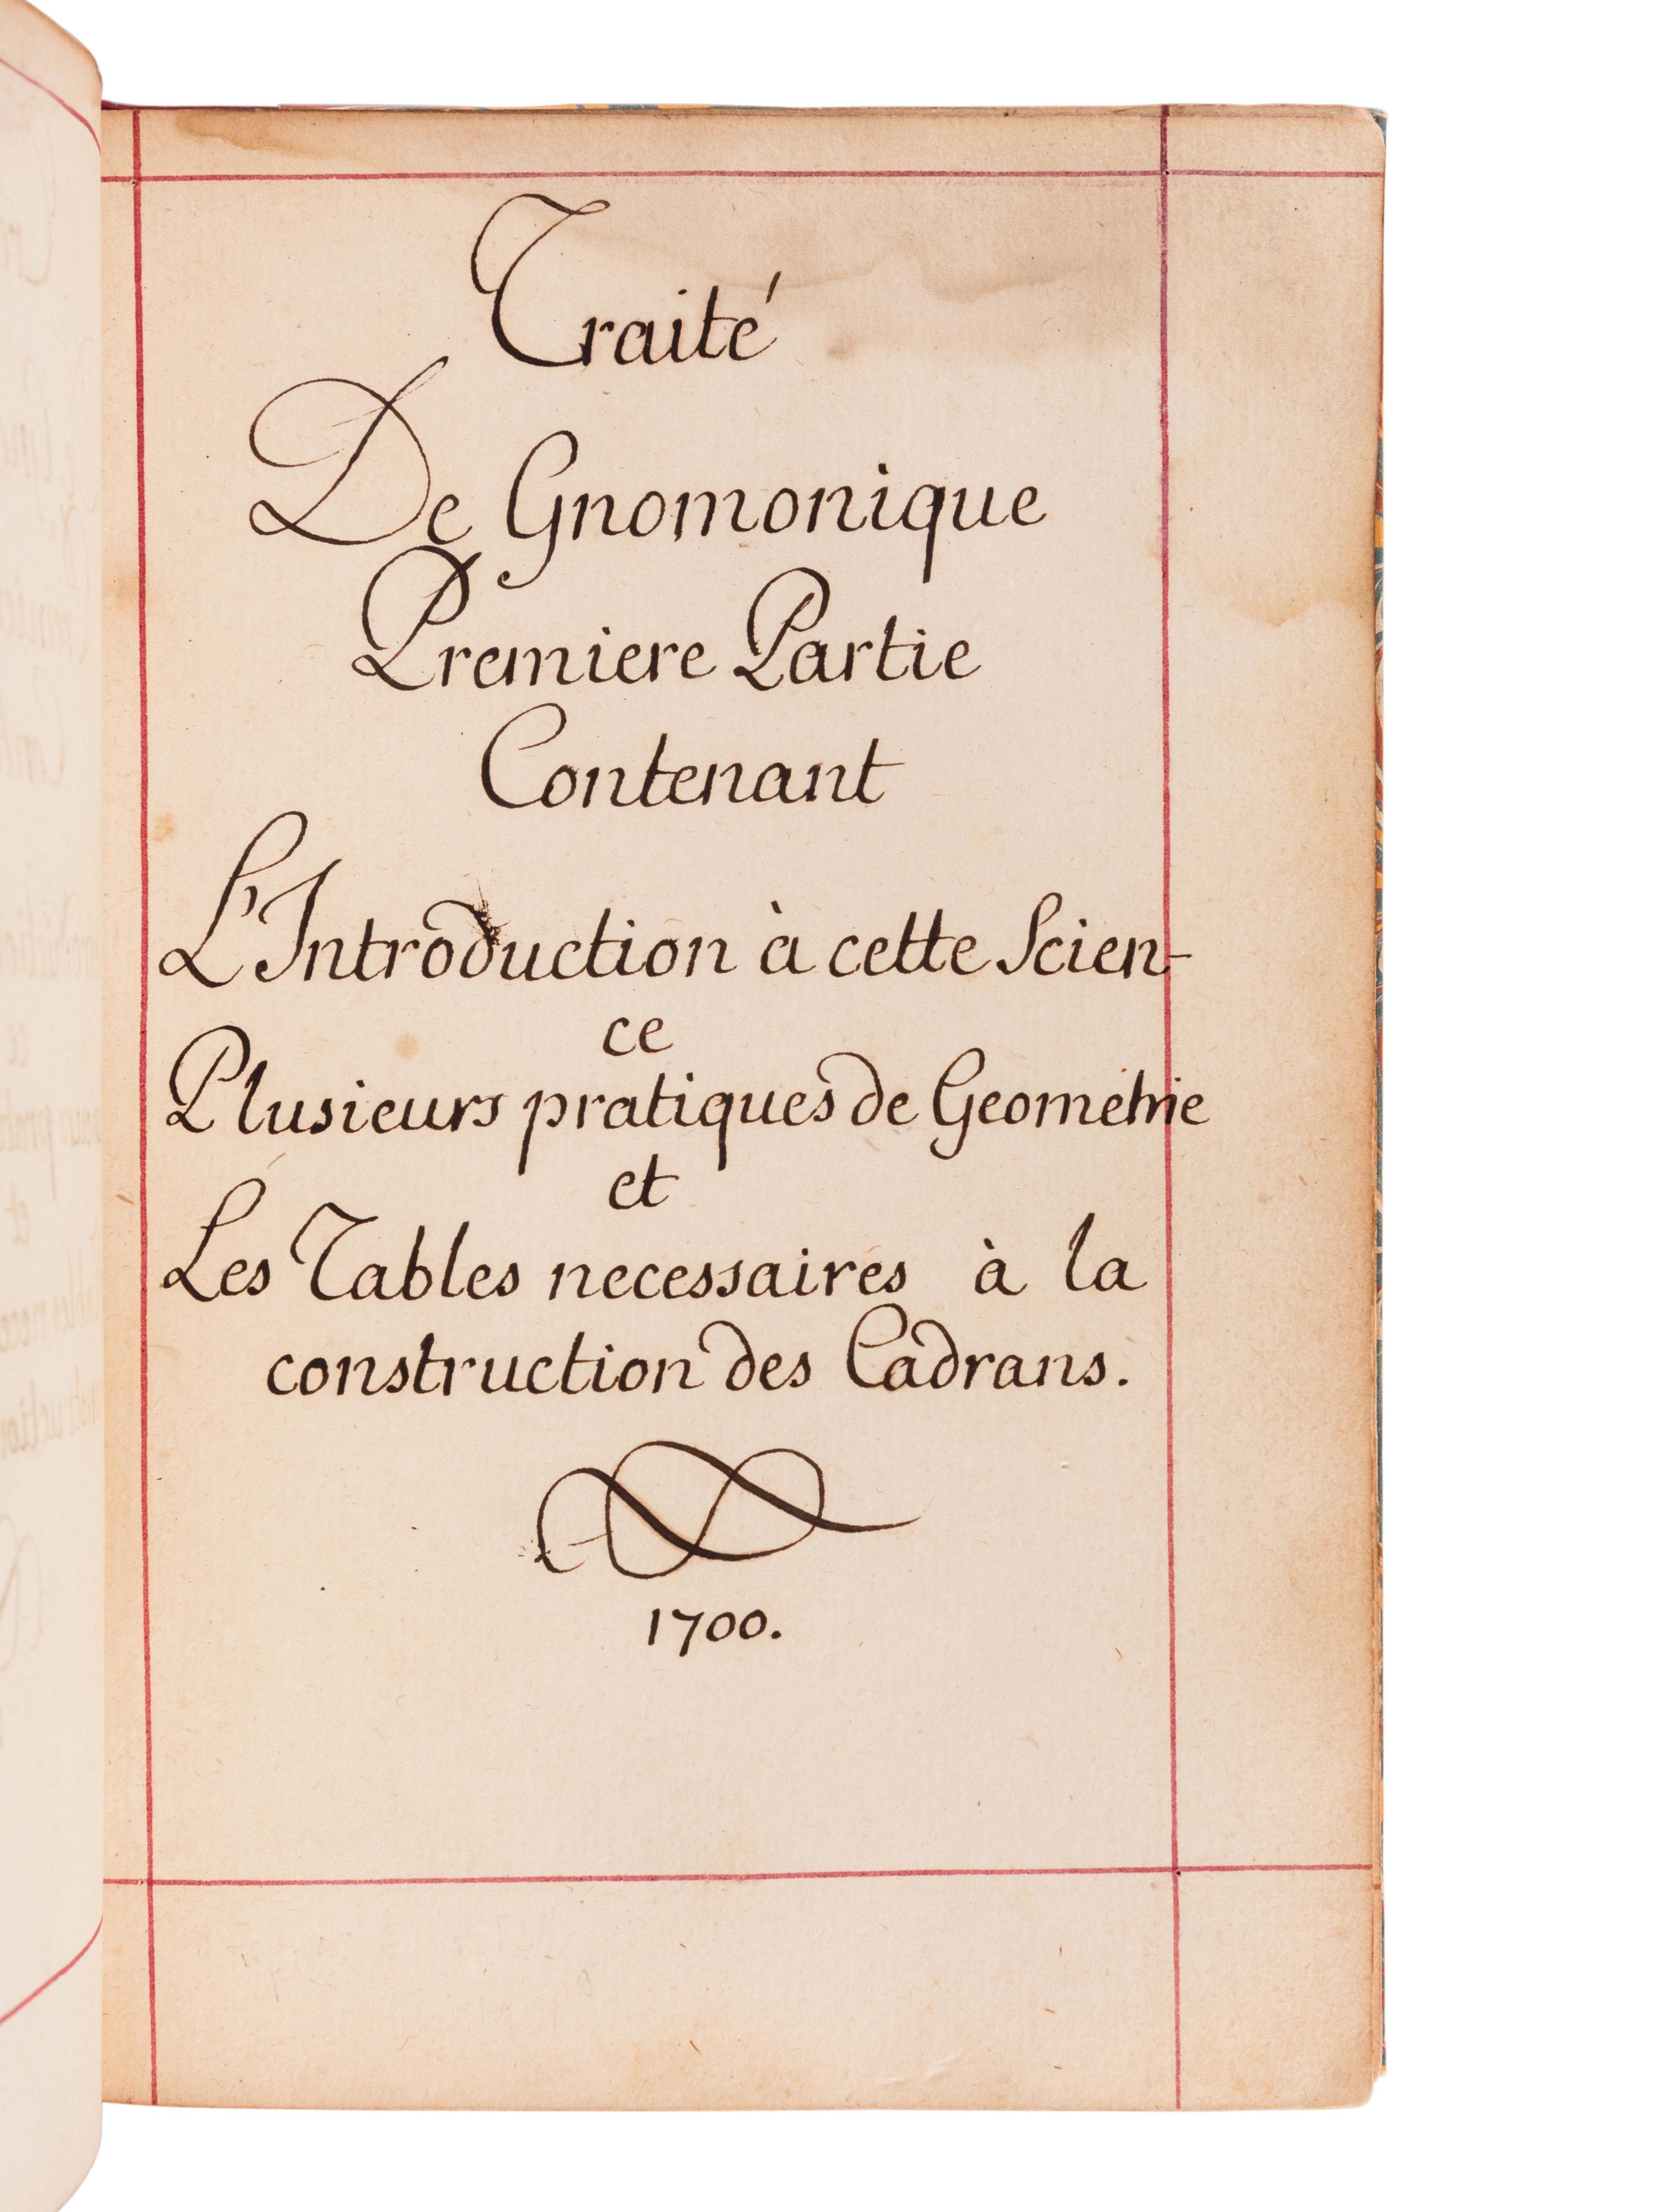 Traité
De Gnomonique
Premiere Partie
Contenant
L'Introduction à cette Scien-
ce
Plusieurs pratiques de Geometrie
et
Les Tables necessaires à la
construction des Cadrans.
1700.